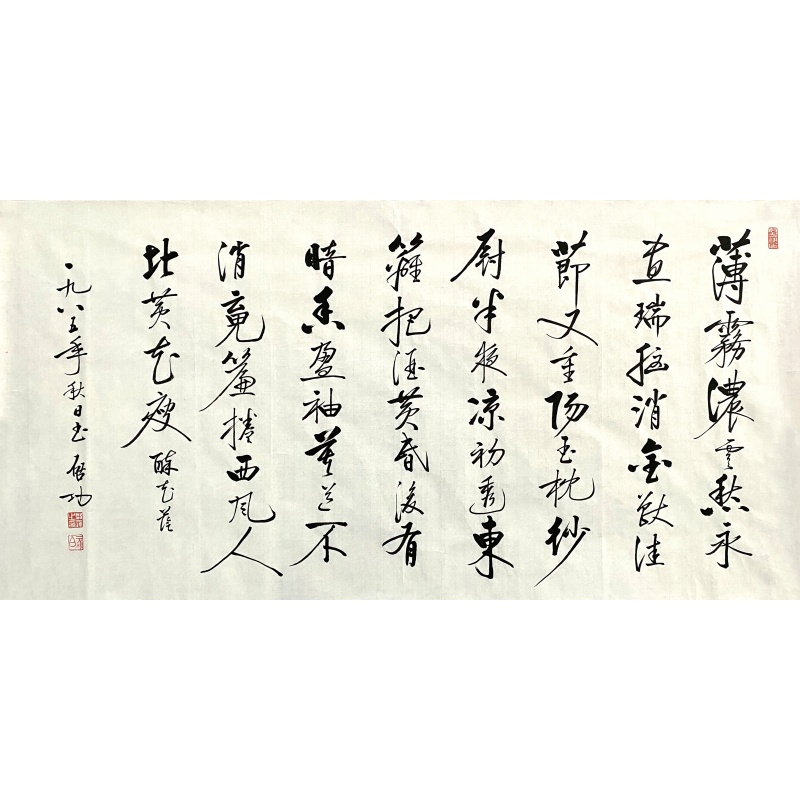 薄霧濃雲愁永
晝瑞腦消金獸佳
節又重陽玉枕紗
廚半夜涼初透東
籬把酒黃昏後有
暗香盈袖莫道不
消魂簾捲西風人
比黃花瘦 醉花蔭
一九八五年秋日書 啟功